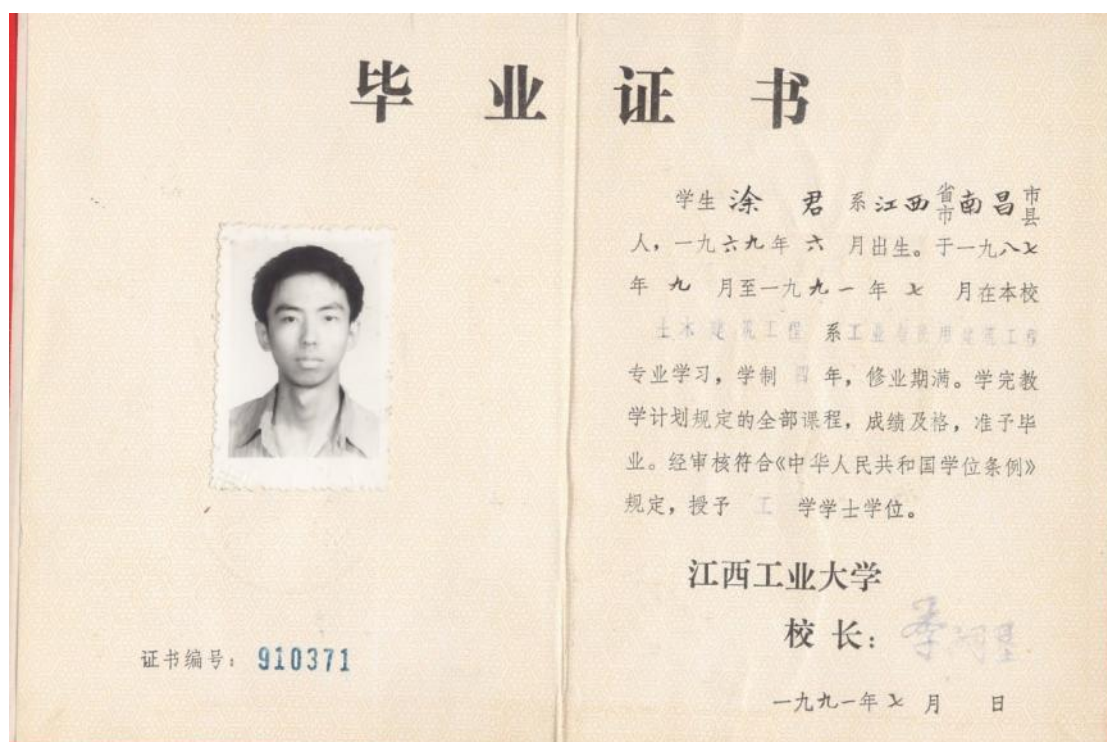 毕业证书
学生 涂 君 系江西省市南昌市县
人，一九六九年 六 月出生。于一九八七
年 九 月至一九九一年 七 月在本校
土木建筑工程 系工业与民用建筑工程
专业学习，学制 四 年，修业期满。学完教
学计划规定的全部课程，成绩及格，准予毕
业。经审核符合《中华人民共和国学位条例》
规定，授予 工 学学士学位。
江西工业大学
校 长：
证书编号：910371
一九九一年七月 日